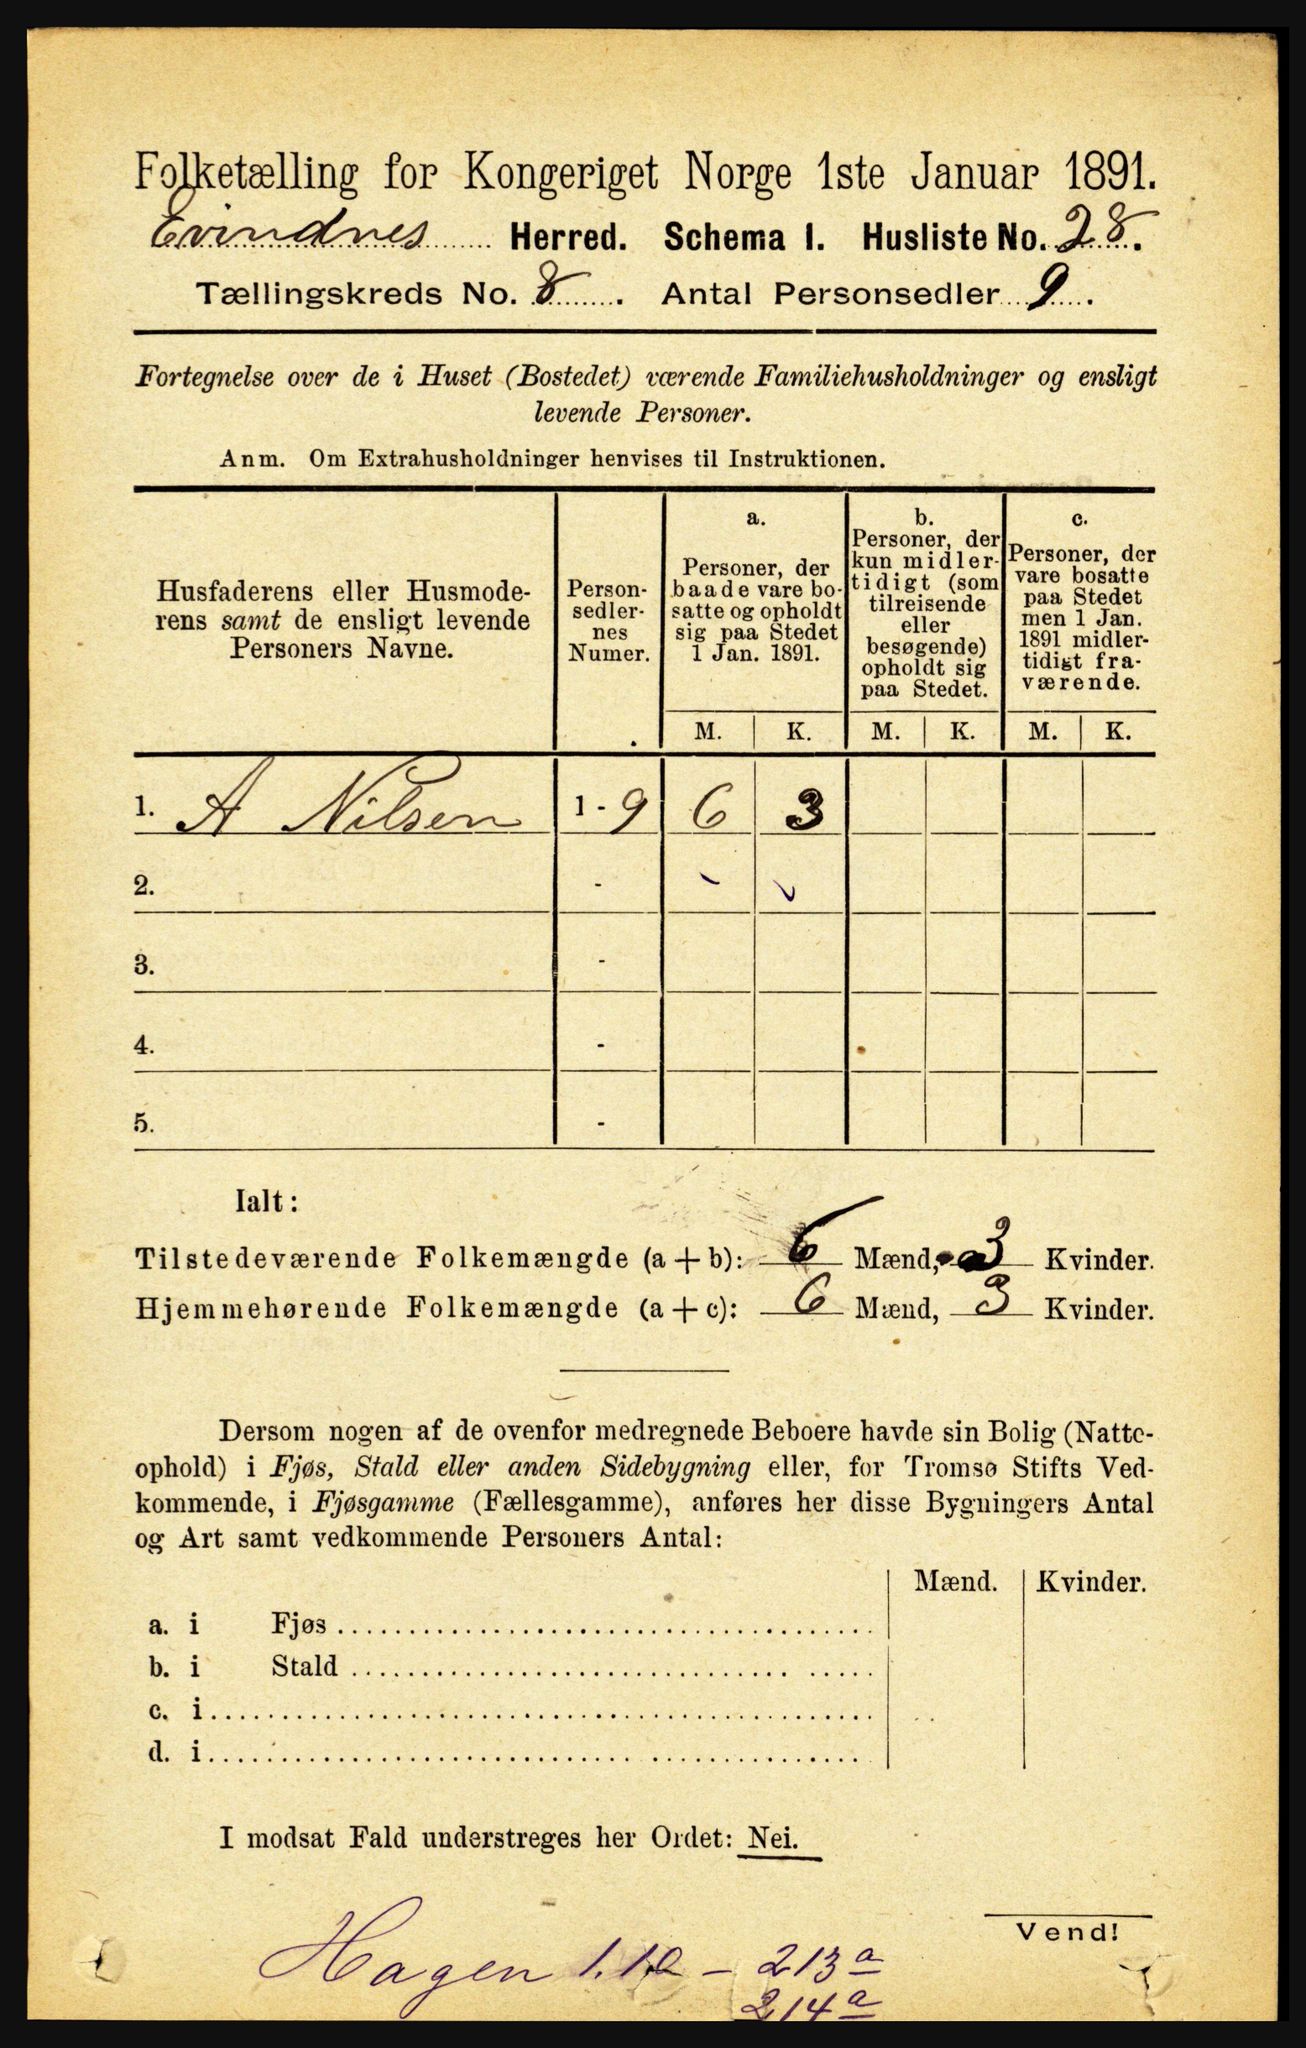 Folketælling for Kongeriget Norge 1ste Januar 1891.
Evindnes Herred. Schema I. Husliste No. 28.
Tællingskreds No. 8. Antal Personsedler 9.
Fortegnelse over de i Huset (Bostedet) værende Familiehusholdninger og ensligt
levende Personer.
Anm. Om Extrahusholdninger henvises til Instruktionen.
Husfaderens eller Husmode-
rens samt de ensligt levende
Personers Navne.
Person-
sedler-
nes
Numer.
a.
Personer, der
baade vare bo-
satte og opholdt
sig paa Stedet
1 Jan. 1891.
b.
Personer, der
kun midler-
tidigt (som
tilreisende
eller
besøgende)
opholdt sig
paa Stedet.
c.
Personer, der
vare bosatte
paa Stedet
men 1 Jan.
1891 midler-
tidigt fra-
værende.
M. K. M. K. M. K.
1. A Nilsen 1 - 9 6 3
2. -
3. -
4. -
5. -
Ialt:
Tilstedeværende Folkemængde (a + b): 6 Mænd, 3 Kvinder.
Hjemmehørende Folkemængde (a + c): 6 Mænd, 3 Kvinder.
Dersom nogen af de ovenfor medregnede Beboere havde sin Bolig (Natte-
ophold) i Fjøs, Stald eller anden Sidebygning eller, for Tromsø Stifts Ved-
kommende, i Fjøsgamme (Fællesgamme), anføres her disse Bygningers Antal
og Art samt vedkommende Personers Antal:
Mænd. Kvinder.
a. i Fjøs
b. i Stald
c. i
d. i
I modsat Fald understreges her Ordet: Nei.
Vend!
Hagen - 213a
214a